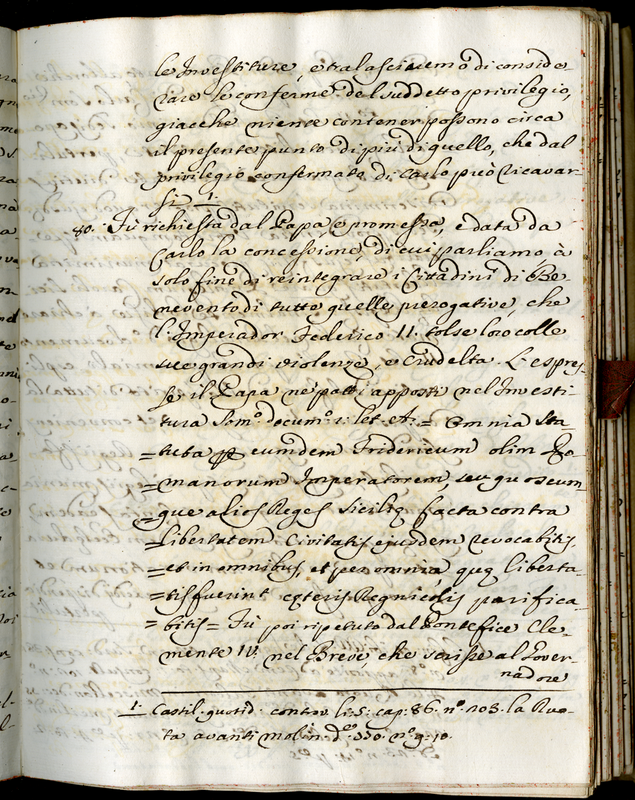 le Investiture, e tralasciaremo di conside-
rare le conferme del suddetto privilegio,
giacche niente contener possono circa
il presente punto di più di quello, che dal
privilegio confermato di Carlo può ricavar-
si 1.
80. Fù richiesta dal Papa e promessa, e data da
Carlo la concessione, di cui parliamo, à
solo fine di reintegrare i Cittadini di Be-
nevento di tutte quelle prerogative, che
l'Imperador Federico II. tolse loro colle
sue grandi violenze, e Crudeltà. L'espres-
se il Papa ne' patti apposti nel Investi-
tura Som.º docum.º 1: let. A: = Omnia sta-
= tuta per eumdem Fridericum olim Ro-
= manorum Imperatorem, seu quoscum-
= que alios Reges Sicilię facta contra
= libertatem Civitatis ejusdem revocabitis,
= et in omnibus, et per omnia, quę liberta-
= tis fuerint cęteris Regnicolis parifica-
= bitis = Fù poi ripetuto dal Pontefice Cle-
mente IV. nel Breve, che scrisse al Gover-
nadore
1. Castil. quotid. controv. li: 5: cap: 86. nº 103. la Ruo-
ta avanti Molin. d. 350. nº 9: 10.